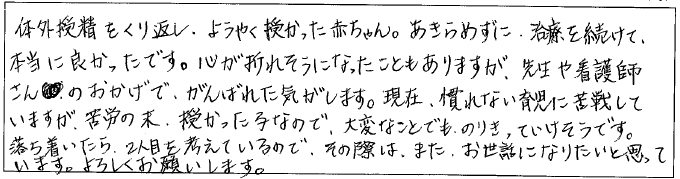 体外授精をくり返し、ようやく授かった赤ちゃん。あきらめずに、治療を続けて、
本当に良かったです。心が折れそうになったこともありますが、先生や看護師
さんのおかげで、がんばれた気がします。現在、慣れない育児に苦戦して
いますが、苦労の末、授かった子なので、大変なことでも、のりきっていけそうです。
落ち着いたら、2人目を考えているので、その際は、また、お世話になりたいと思って
います。よろしくお願いします。